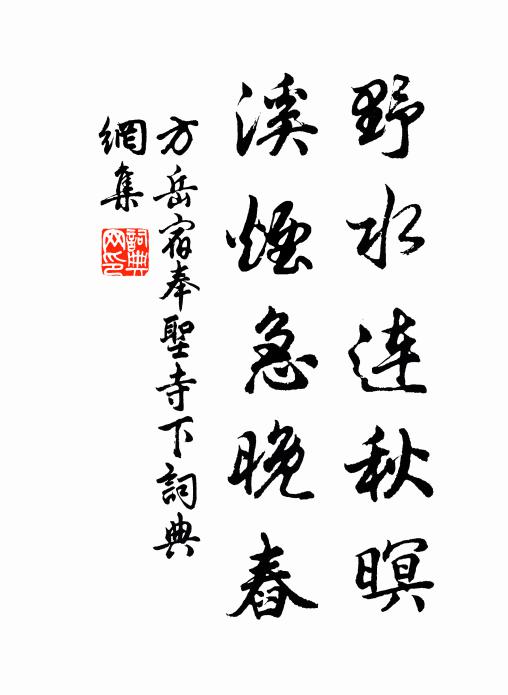 野水連秋暝
溪煙急晚舂
方岳宿奉聖寺下詞典
網集
詞典網印